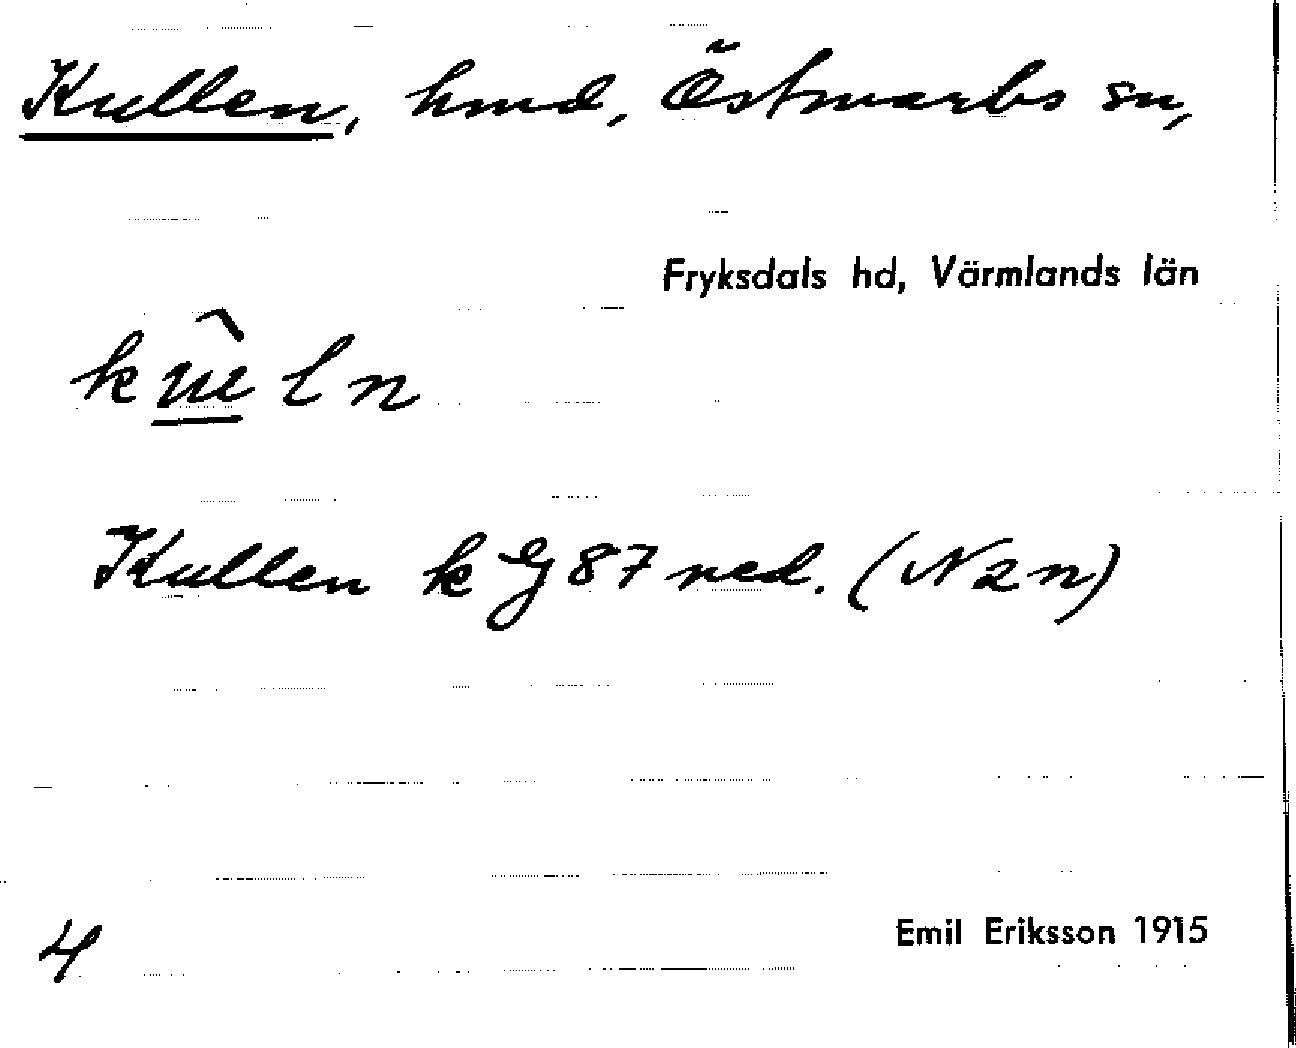 Kullen, hmd, Östmarks sn,
Fryksdals hd, Värmlands län
Kullen k G 87 ned. (N2n)
4
Emil Eriksson 1915